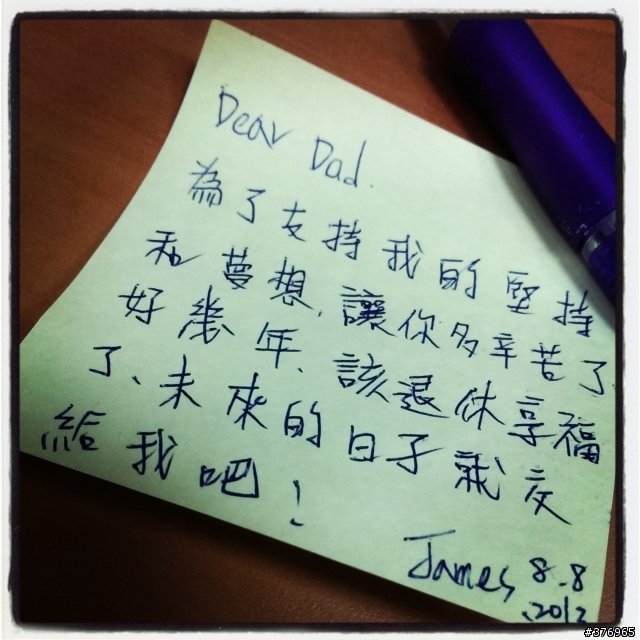 Dear Dad.
為了支持我的堅持
和夢想,讓你多辛苦了
好幾年、該退休享福
了、未來的日子就交
給我吧!
James 8.8
.2012
#376965